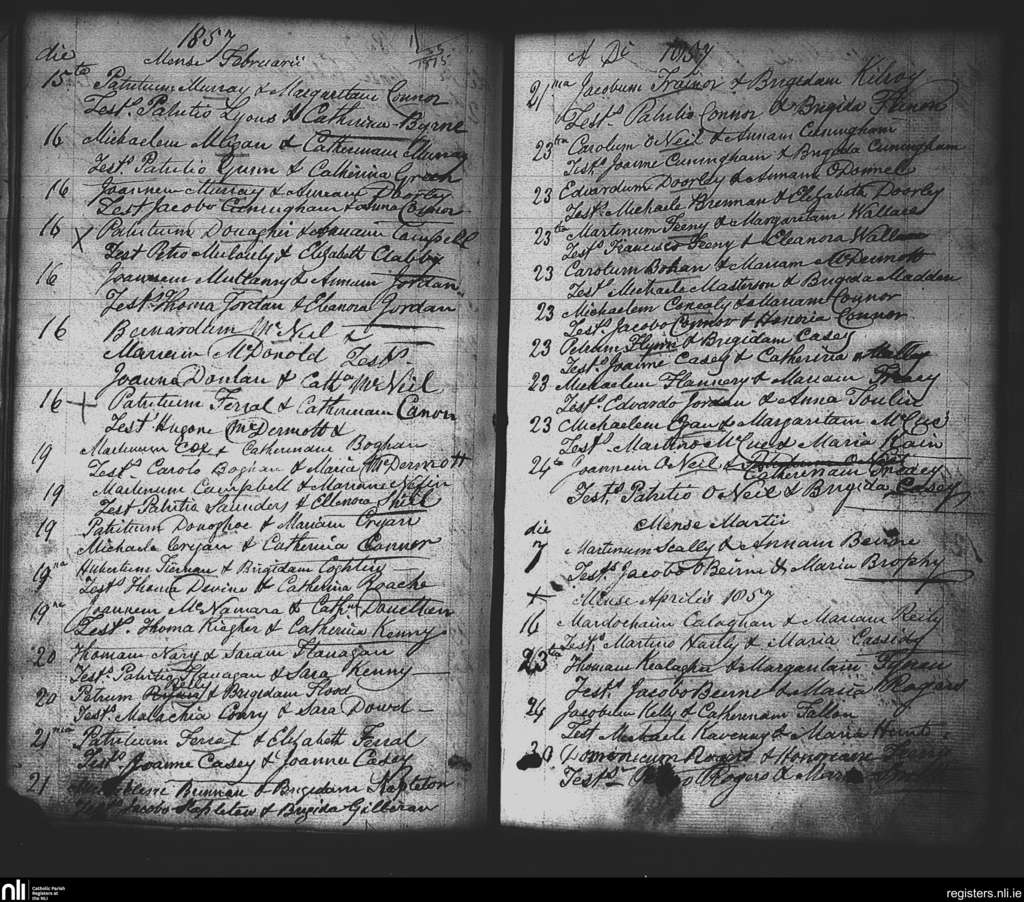 1857
die Mense Februarii
15 to Patritium Murray & Margaritam Connor
Test.s Patritio Lyons & Catherina Byrne
16 Michaelem & Catherinam Murray
Test.s Patritio & Catherina
16 Joannem Murray & Doorley
Test Jacobo Cunningham & Anna Connor
16 X Patritium Donagher & Campbell
Test Petro & Elizabeth Clabby
16 Joannem Mullanny & Annam Jordan
Test.s Thoma Jordan & Eleanora Jordan
16 Bernardum McNeil &
Mariam McDonold Test.s
Joanne Donlan & Cath.a McNeil
16 + Patritium Ferral & Catherinam Canon
Test.s Hugone McDermott &
19 Martinum Cox & Catherinam Boghan
Test.s Carolo Boghan & Maria McDermott
19 Martinum Campbell & Mariam
Test Patritio Saunders & Ellenora
19 Patritium Donoghoe & Mariam Cryan
Michaele Cryan & Catherina Connor
19 na Hubertum Tiernan & Brigidam
Test.s Thoma Devine & Catherina Roache
19 na Joannem McNamara & Cath.m
Test.s Thoma Kiegher & Catherina Kenny
20 Thomam Nary & Saram Flanagan
Test.s Patritio Flanagan & Sara Kenny
20 Petrum & Brigidam Flood
Test.s Malachia Conry & Sara Dowd
21 ma Patritium Ferral & Elizabeth Ferral
Test.s Joanne Casey & Joanna Casey
21 Brennan & Brigidam Stapleton
Test.s Jacobo Stapleton & Brigida Gilleran
A Di 1857
21 ma Jacobum Trainor & Brigidam Kilroy
Test.s Patritio Connor & Brigida
23 tia Carolum O Neil & Annam Cuningham
Test.s Joanne Cuningham & Brigida Cuningham
23 Edvardum Doorley & Annam O Donnel
Test.s Michaele Brennan & Elizabeth Doorley
23 tia Martinum Feeny & Margaritam Wallace
Test.s Francisco Feeny & Eleanora Wallace
23 Carolum Bohan & Mariam McDermott
Test.s Michaele Masterson & Brigida Madden
23 Michaelem Conealy & Mariam Connor
Test.s Jacobo Connor & Honoria Connor
23 Petrum Flynn & Brigidam Casey
Test.s Joanne Casey & Catherina
23 Michaelem Flannery & Mariam Treacy
Test.s Edvardo Jordan & Anna
23 Michaelem Egan & Margaritam McCue
Test.s Martino McCue & Maria Kain
24 to Joannem O Neil &
Catherinam
Test.s Patritio O Neil & Brigida Casey
die Mense Martii
7 Martinum Scally & Annam Beirne
Test.s Jacobo O Beirne & Maria Brophy
+ Mense Aprilis 1857
16 Mardochaim Calaghan & Mariam Reily
Test.s Martino & Maria Cassidy
23 tia Thomam & Margaritam
Test.s Jacobo Beirne & Maria Rogers
24 Jacobum Kelly & Catherinam Fallon
Test Michaele & Maria Hunt
30 Dominicum Rogers & Honoriam
Test.s Rogers & Maria
nli Catholic Parish
Registers at
the NLI
registers.nli.ie